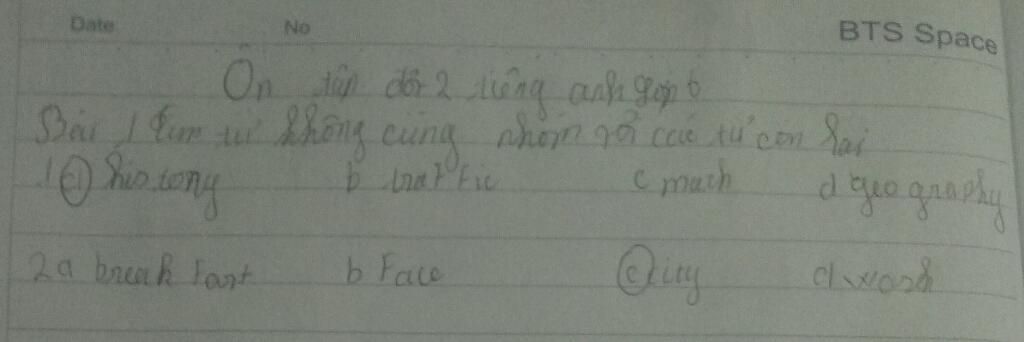 Date No BTS Space
Ôn tập đợt 2 tiếng anh 6
Bài 1 tìm từ không cùng nhóm với các từ còn lại
1 a history b traffic c math d geography
2 a break fast b Face c city d wash